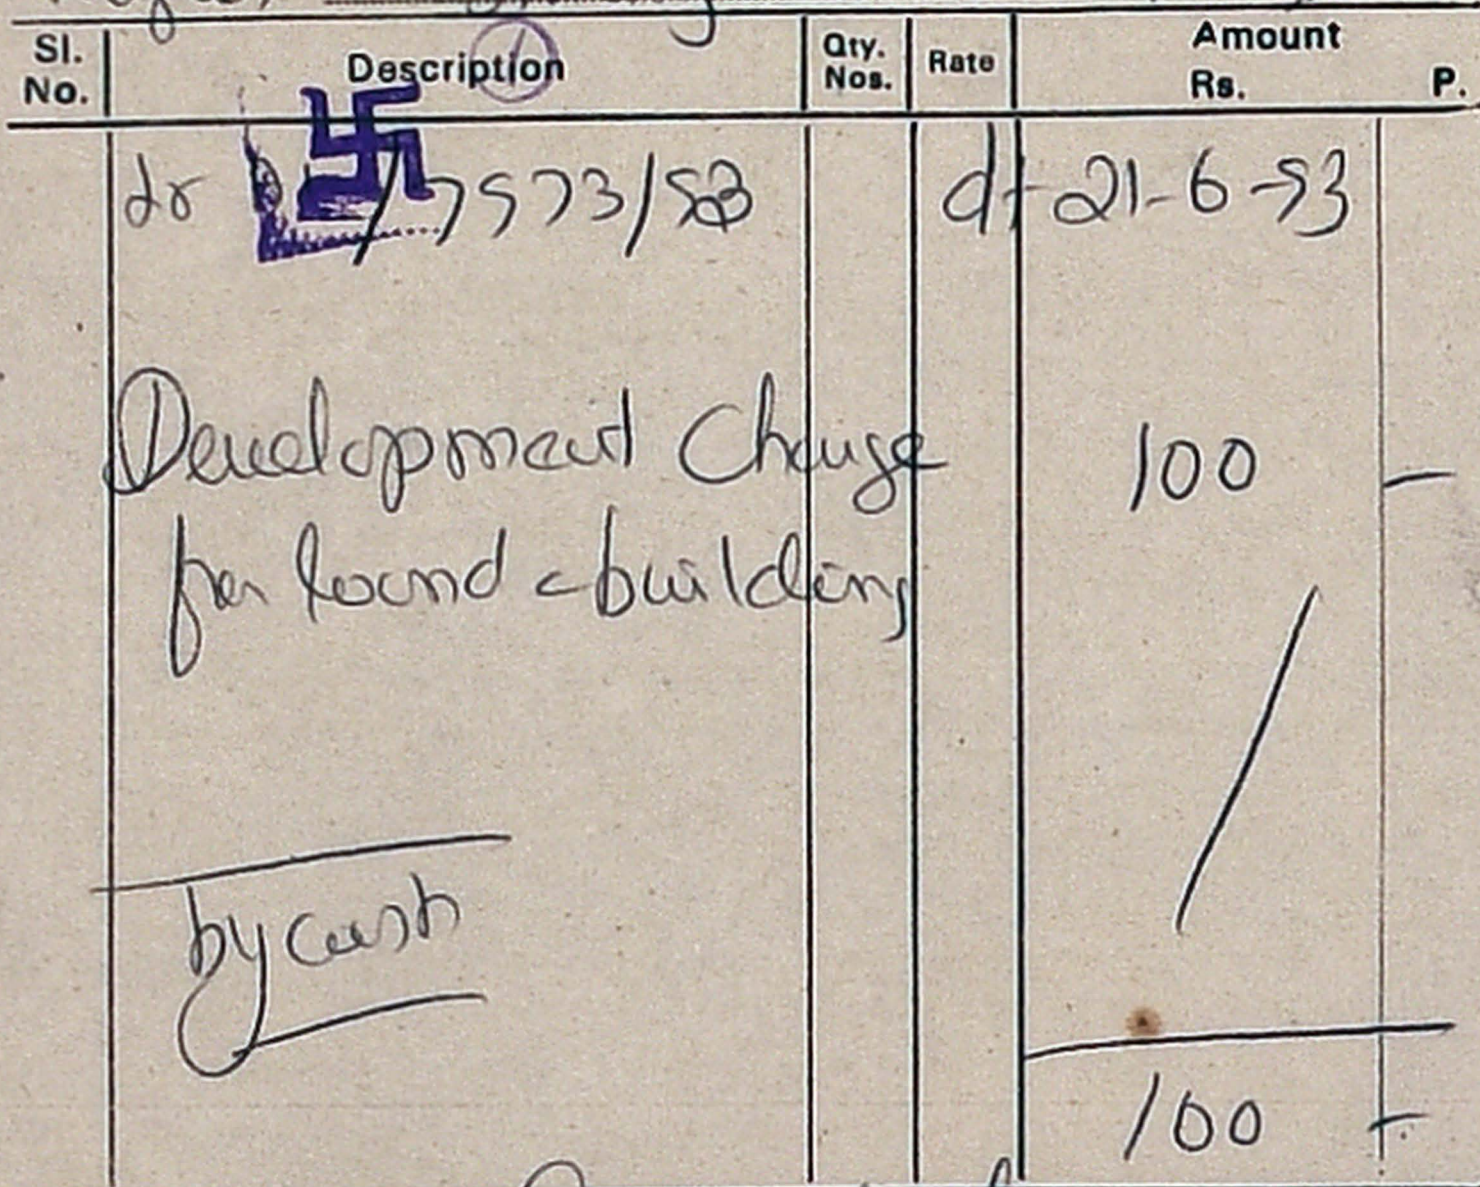 Sl. No. Description Qty. Nos. Rate Amount Rs. P.
dr 7573/53 dt 21-6-53
Development Charge 100 —
for Lound & building
by cash
100 —